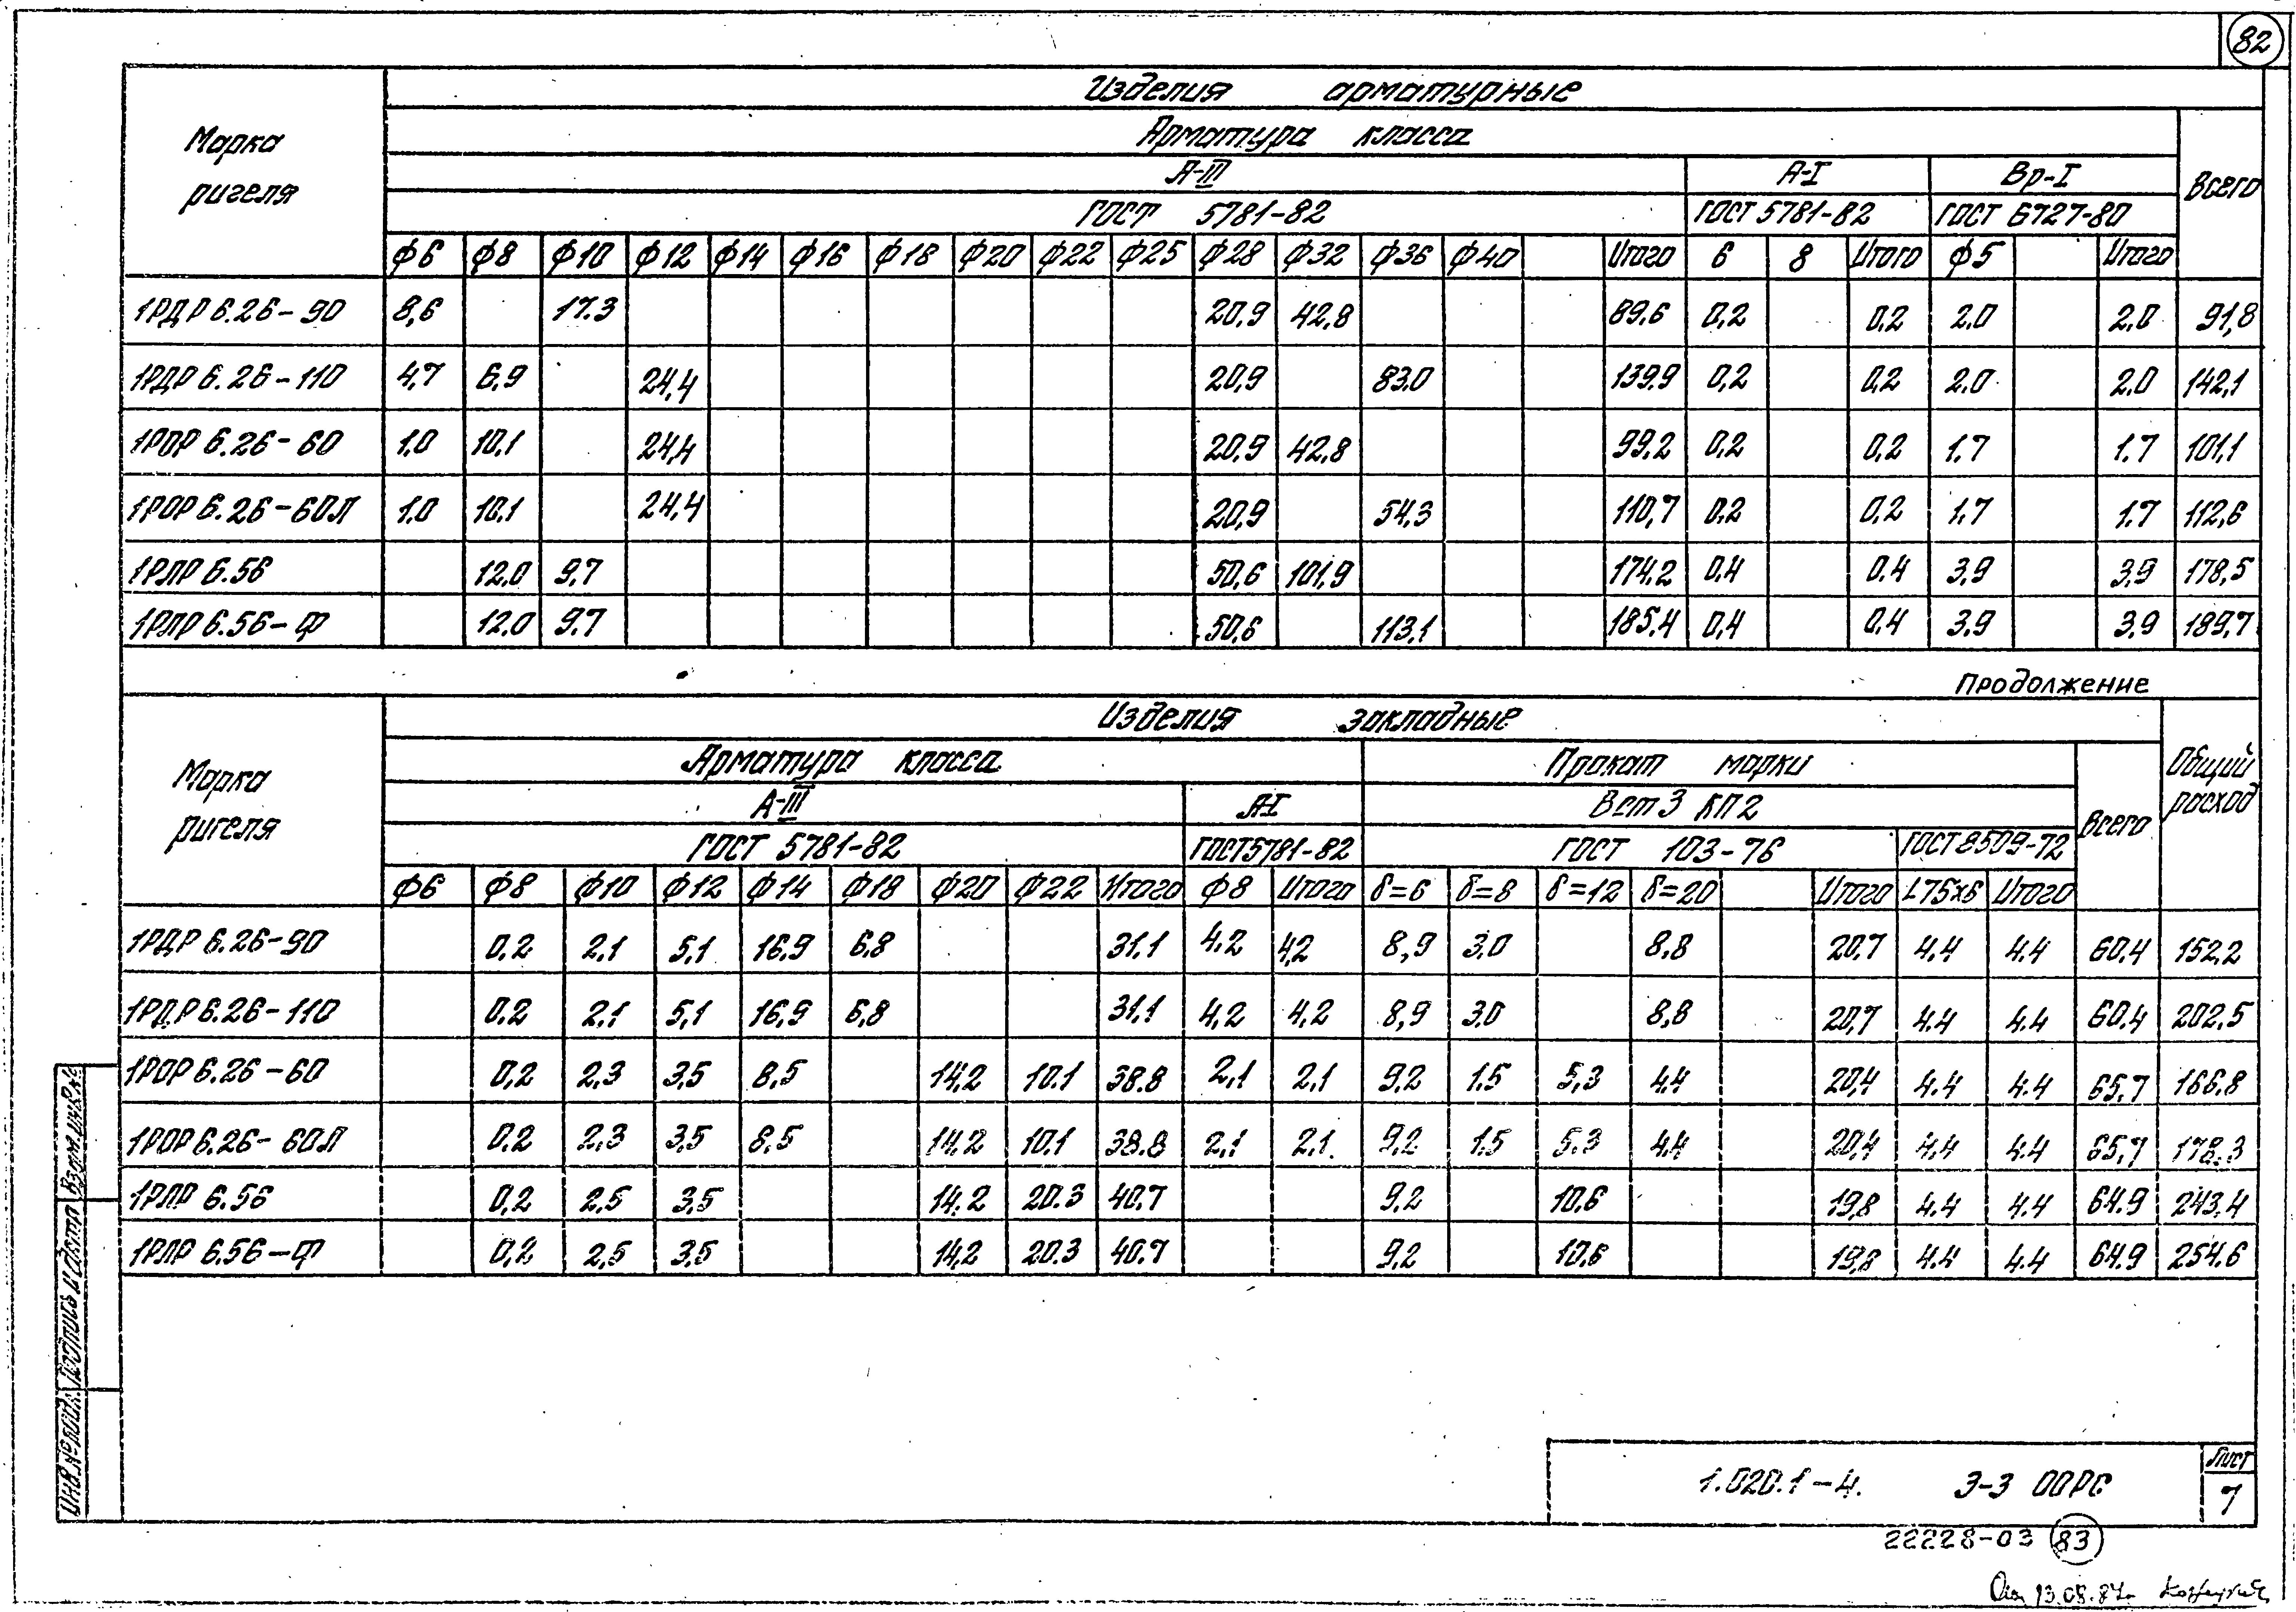 82
Изделия арматурные
Марка ригеля
Арматура класса
Всего
А-III А-I Вр-I
ГОСТ 5781-82 ГОСТ 5781-82 ГОСТ 6727-80
ф6 ф8 ф10 ф12 ф14 ф16 ф18 ф20 ф22 ф25 ф28 ф32 ф36 ф40 Итого 6 8 Итого ф5 Итого
1РДР 6.26-90 8,6 17.3 20,9 42,8 89,6 0,2 0,2 2.0 2.0 91,8
1РДР 6.26-110 4,7 6,9 24,4 20,9 83.0 139.9 0,2 0,2 2.0 2.0 142,1
1РОР 6.26-60 1.0 10,1 24,4 20,9 42,8 99,2 0,2 0,2 1.7 1.7 101,1
1РОР 6.26-60Л 1.0 10.1 24,4 20,9 54,3 110,7 0,2 0,2 1.7 1.7 112,6
1РЛР 6.56 12.0 9,7 50,6 101,9 174,2 0,4 0.4 3,9 3,9 178,5
1РЛР 6.56-Ф 12.0 9.7 50,6 113,1 185,4 0,4 0,4 3,9 3,9 189,7
Продолжение
Изделия закладные
Марка ригеля
Арматура класса Прокат марки
Всего
Общий расход
А-III А-I Вст3 КП2
ГОСТ 5781-82 ГОСТ5781-82 ГОСТ 103-76 ГОСТ8509-72
ф6 ф8 ф10 ф12 ф14 ф18 ф20 ф22 Итого ф8 Итого δ=6 δ=8 δ=12 δ=20 Итого L75×6 Итого
1РДР 6.26-90 0,2 2,1 5,1 16,9 6,8 31.1 4.2 4,2 8,9 3,0 8,8 20,7 4.4 4.4 60,4 152,2
1РДР 6.26-110 0,2 2,1 5,1 16,9 6,8 31,1 4,2 4.2 8,9 3.0 8,8 20,7 4.4 4.4 60,4 202,5
1РОР 6.26-60 0,2 2,3 3,5 8,5 14,2 10.1 38.8 2,1 2,1 9,2 1.5 5,3 4,4 20,4 4.4 4.4 65,7 166,8
1РОР 6.26-60Л 0,2 2,3 3,5 8,5 14,2 10,1 38.8 2,1 2,1 9,2 1.5 5.3 4,4 20,4 4.4 4.4 65,7 178.3
1РЛР 6.56 0,2 2,5 3,5 14,2 20.3 40,7 9,2 10,6 19,8 4.4 4.4 64.9 243,4
1РЛР 6.56-Ф 0,2 2,5 3,5 14,2 20.3 40.7 9,2 10,6 19,8 4.4 4.4 64.9 254.6
Инв.№ подл. Подпись и дата Взам.инв.№
1.020.1-4. 3-3 00РС
Лист
7
22228-03 83
13.08.87г